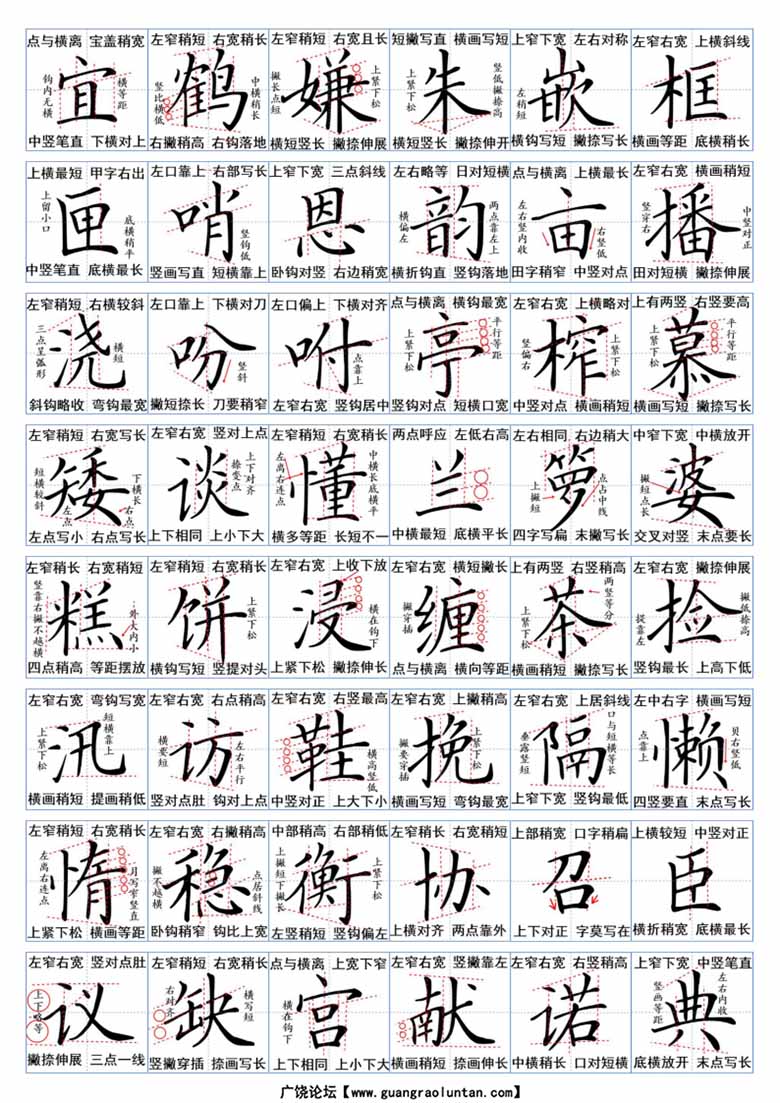 点与横离 宝盖稍宽 左窄稍短 右宽稍长 左窄稍短 右宽且长 短撇写直 横画写短 上窄下宽 左右对称 左窄右宽 上横斜线
钩内无横 宜 横等距 竖比横低 鹤 中横稍长 撇长点短 嫌 上紧下松 上紧下松 朱 竖低撇捺高 左稍短 嵌 框
中竖笔直 下横对上 右撇稍高 右钩落地 横短竖长 撇捺伸展 横短竖长 撇捺伸开 横钩写短 撇捺写长 横画等距 底横稍长
上横最短 甲字右出 左口靠上 右部写长 上窄下宽 三点斜线 左右略等 日对短横 点与横离 上横最长 左窄右宽 横画稍短
上留小口 匣 底横稍平 哨 竖钩低 恩 横偏左 韵 两点靠左上 左右竖内收 亩 右竖低 竖穿右 播 中竖对正
中竖笔直 底横最长 竖画写直 短横靠上 卧钩对竖 右边稍宽 横折钩直 竖钩落地 田字稍窄 中竖对点 田对短横 撇捺伸展
左窄稍短 右横较斜 左口靠上 下横对刀 左口偏上 下横对齐 点与横离 横钩最宽 左窄右宽 上横略对 上有两竖 右竖要高
三点呈弧形 浇 横短 吩 竖斜 咐 点靠上 上紧下松 亭 平行等距 竖偏右 榨 上紧下松 上紧下松 慕 平行等距
斜钩略收 弯钩最宽 撇短捺长 刀要稍窄 左窄右宽 竖钩居中 竖钩对点 短横口宽 中竖对点 横画稍短 横画写短 撇捺写长
左窄稍短 右宽写长 左窄右宽 竖对上点 左窄稍短 右宽稍长 两点呼应 左低右高 左右相同 右边稍大 中窄下宽 中横放开
短横较斜 矮 下横长 左点 右点 谈 上下对齐 捺变点 左离右连点 懂 中横长底横平 兰 上撇短 箩 点占中线 撇短点长 婆
左点写小 右点写长 上下相同 上小下大 横多等距 长短不一 中横最短 底横平长 四字写扁 末撇写长 交叉对竖 末点要长
左窄稍长 右宽稍短 左窄稍短 右宽稍长 左窄右宽 上收下放 左窄右宽 横短撇长 上有两竖 右竖稍高 左窄右宽 撇捺伸展
竖靠右撇不越横 糕 外大内小 饼 上紧下松 浸 横在钩下 撇穿插 缠 上紧下松 茶 两竖等分 提靠左 捡 撇低捺高
四点稍高 等距摆放 横钩写短 竖提对头 上紧下松 撇捺伸长 点与横离 横向等距 横画稍短 撇捺写长 竖钩最长 上高下低
左窄右宽 弯钩写宽 左窄右宽 右点稍高 左窄右宽 右竖最高 左窄右宽 上撇稍高 左窄右宽 上居斜线 左中右字 横画写短
上紧下松 汛 短横靠上 横要短 访 左右平行 鞋 横高竖低 撇要穿插 挽 上紧下松 垂露竖短 隔 口与短横等长 点靠上 懒 贝右竖低
横画稍短 提画稍低 竖对点肚 钩对上点 中竖对正 上大下小 横画写短 弯钩最宽 上窄下宽 竖钩最低 四竖要直 末点写长
左窄稍短 右宽稍长 左窄右宽 右撇稍高 中部稍高 右部稍低 左窄稍长 右宽稍短 上部稍宽 口字稍扁 上横较短 中竖对正
左离右连点 惰 月写窄竖直 撇不越横 稳 点居斜线 上撇短下撇长 衡 上紧下松 协 召 臣
上紧下松 横画等距 卧钩稍窄 钩比上宽 左竖稍短 竖钩偏左 上横对齐 两点靠外 上下对正 字莫写大 横折稍宽 底横最长
左窄右宽 竖对点肚 左窄稍短 右宽稍长 点与横离 上宽下窄 左窄右宽 竖撇靠左 左窄右宽 右竖稍高 上窄下宽 中竖笔直
上下略等 议 右对齐 缺 横写短 横在钩下 宫 献 诺 竖画等距 典 左右内收
撇捺伸展 三点一线 竖撇穿插 捺画写长 上下相同 上小下大 横画稍短 捺画伸长 中横稍长 口对短横 底横放开 末点写长
广饶论坛【www.guangraoluntan.com】